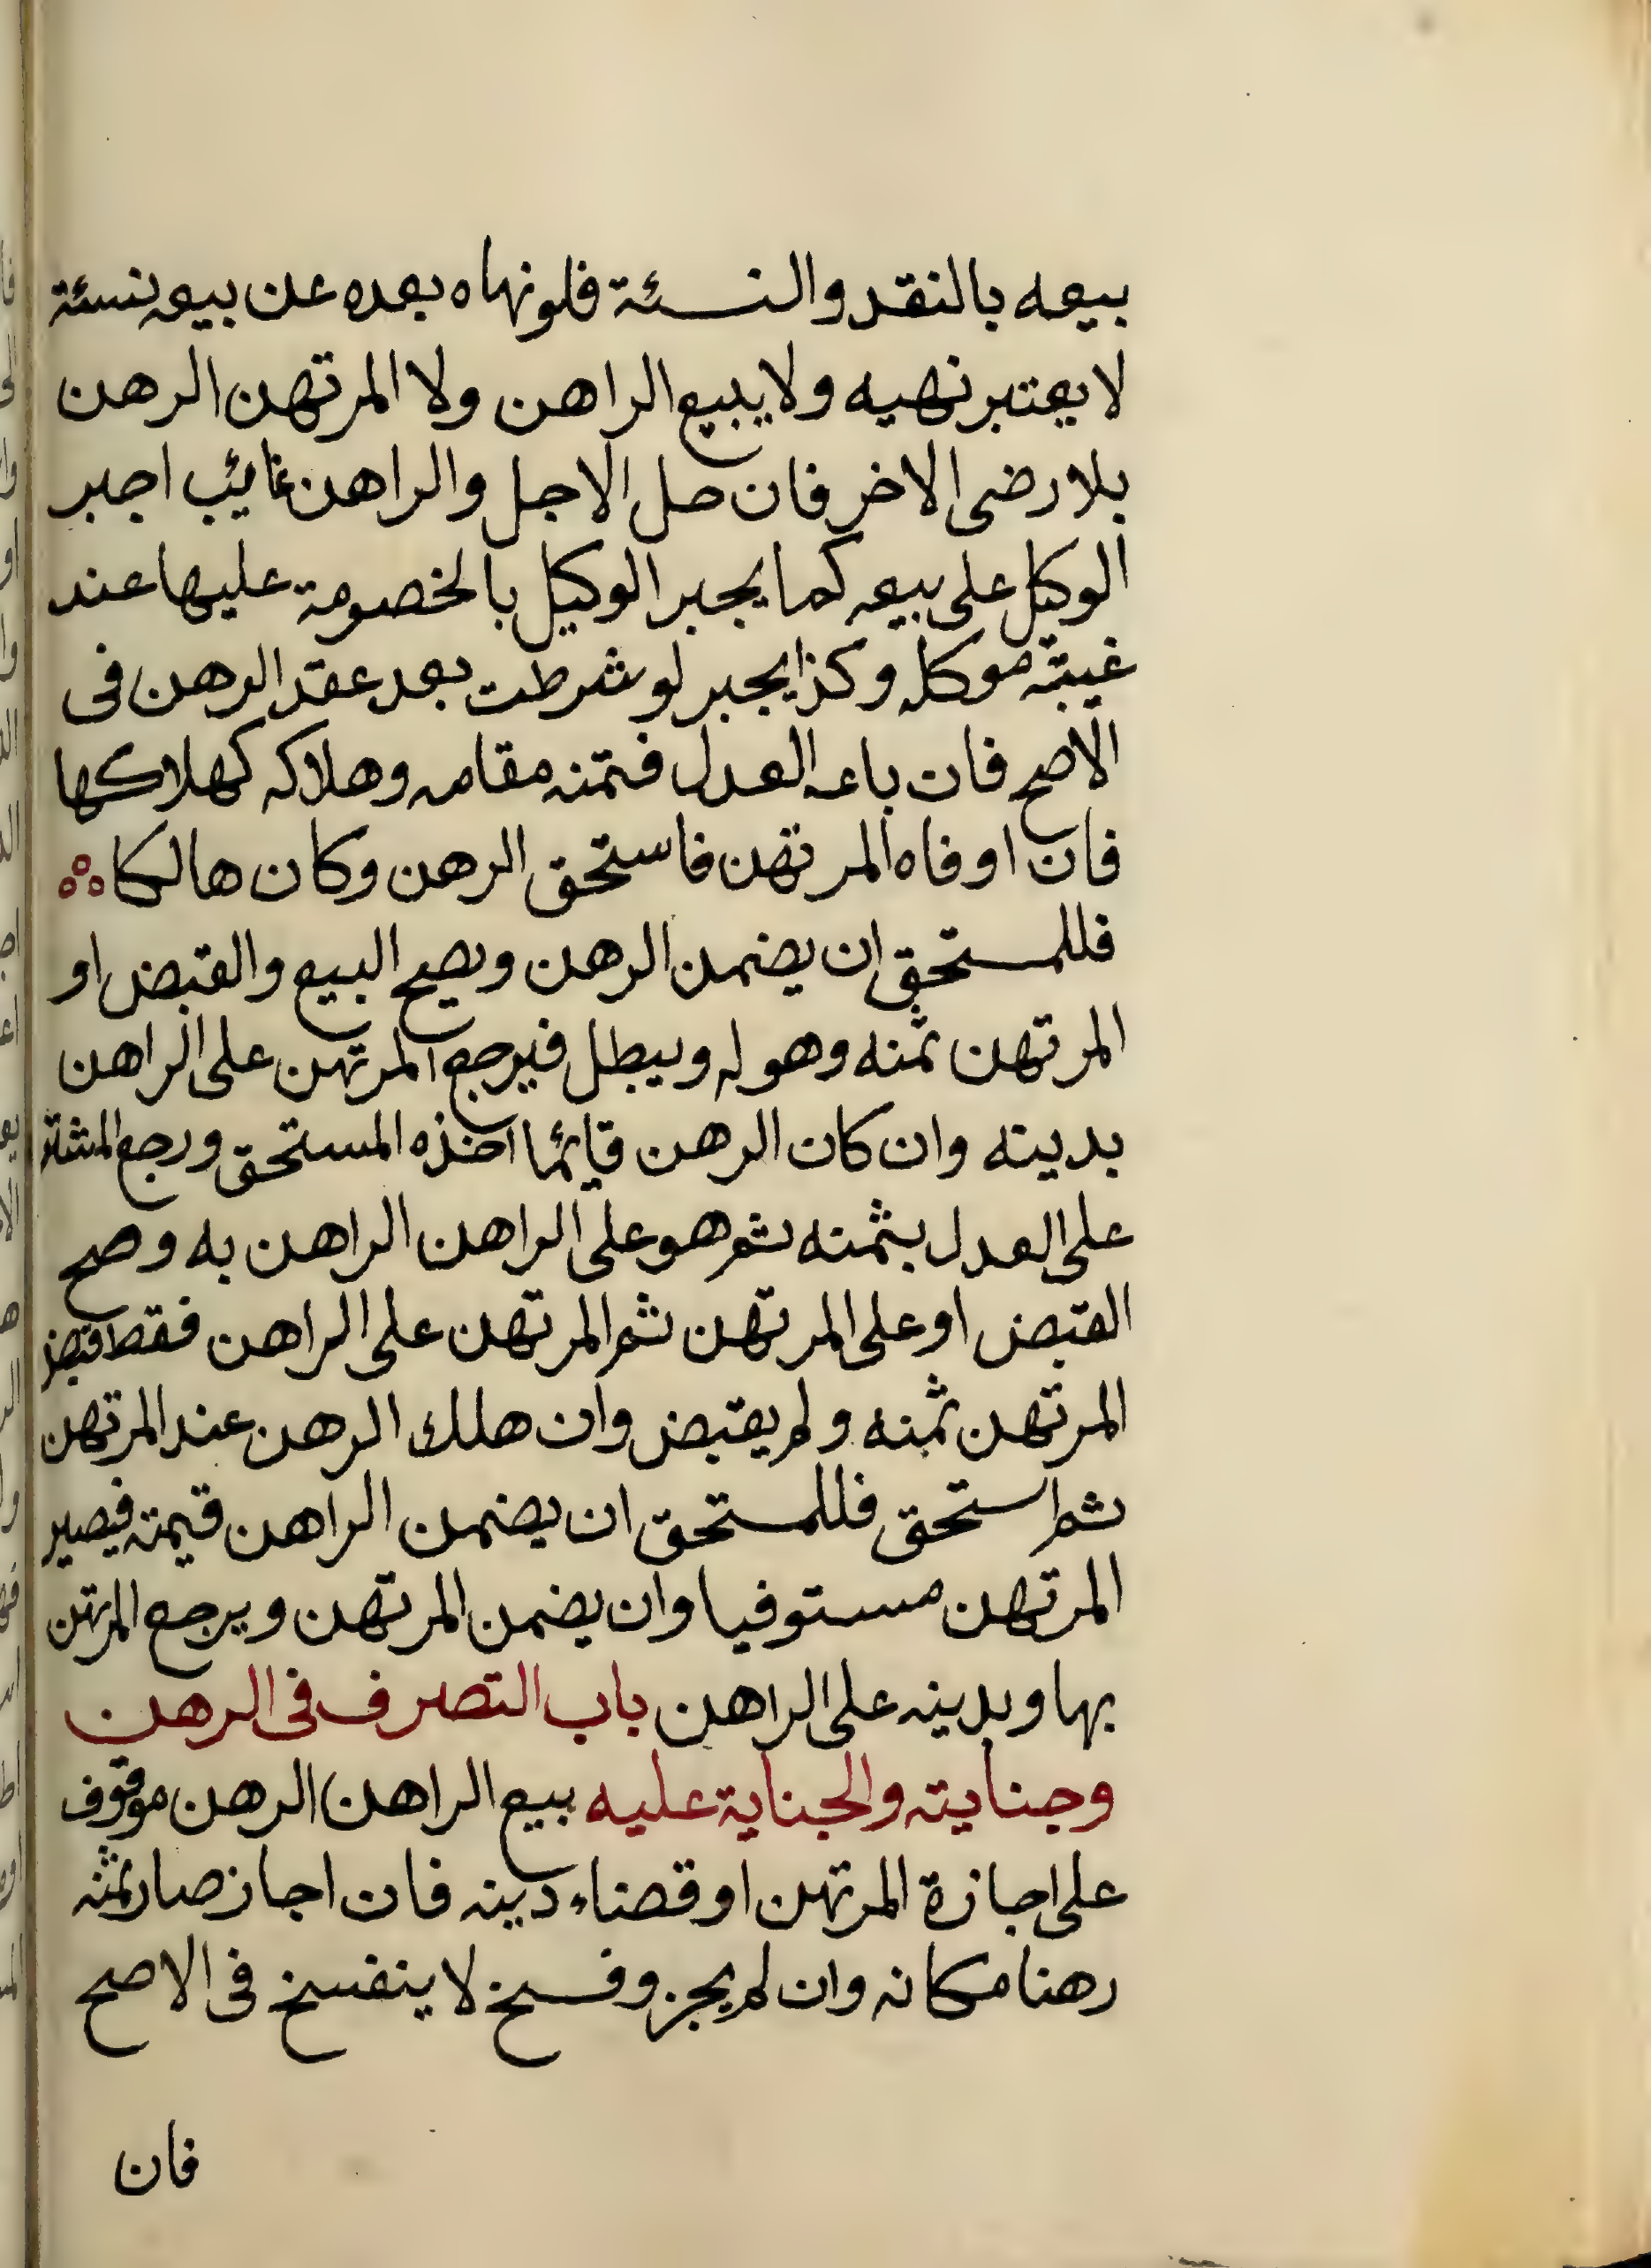 بيعه بالنقد والنسئة فلونهاه بعده عن بيعه نسئة
لا يعتبر نهيه ولا يبيع الراهن ولا المرتهن الرهن
بلا رضى الاخر فان حل الاجل والراهن غائب اجبر
الوكيل على بيعه كما يجبر الوكيل بالخصومة عليها عند
غيبة موكله وكذا يجبر لو شرطت بعد عقد الرهن فى
الاصح فان باعه العدل فثمنه مقامه وهلاكه كهلاكها
فان اوفاه المرتهن فاستحق الرهن وكان هالكا
فللمستحق ان يضمن الرهن ويصح البيع والقبض او
المرتهن ثمنه وهو له ويبطل فيرجع المرتهن على الراهن
بدينه وان كان الرهن قائما اخذه المستحق ورجع المشتر
على العدل بثمنه ثم هو على الراهن الراهن به وصح
القبض او على المرتهن ثم المرتهن على الراهن فقط قبض
المرتهن ثمنه ولم يقبض وان هلك الرهن عند المرتهن
ثم استحق فللمستحق ان يضمن الراهن قيمته فيصير
المرتهن مستوفيا وان يضمن المرتهن ويرجع المرتهن
بها وبدينه على الراهن باب التصرف فى الرهن
وجنايته والجناية عليه بيع الراهن الرهن موقوف
على اجازة المرتهن او قضاء دينه فان اجاز صار ثمنه
رهنا مكانه وان لم يجز وفسخ لا ينفسخ فى الاصح
فان